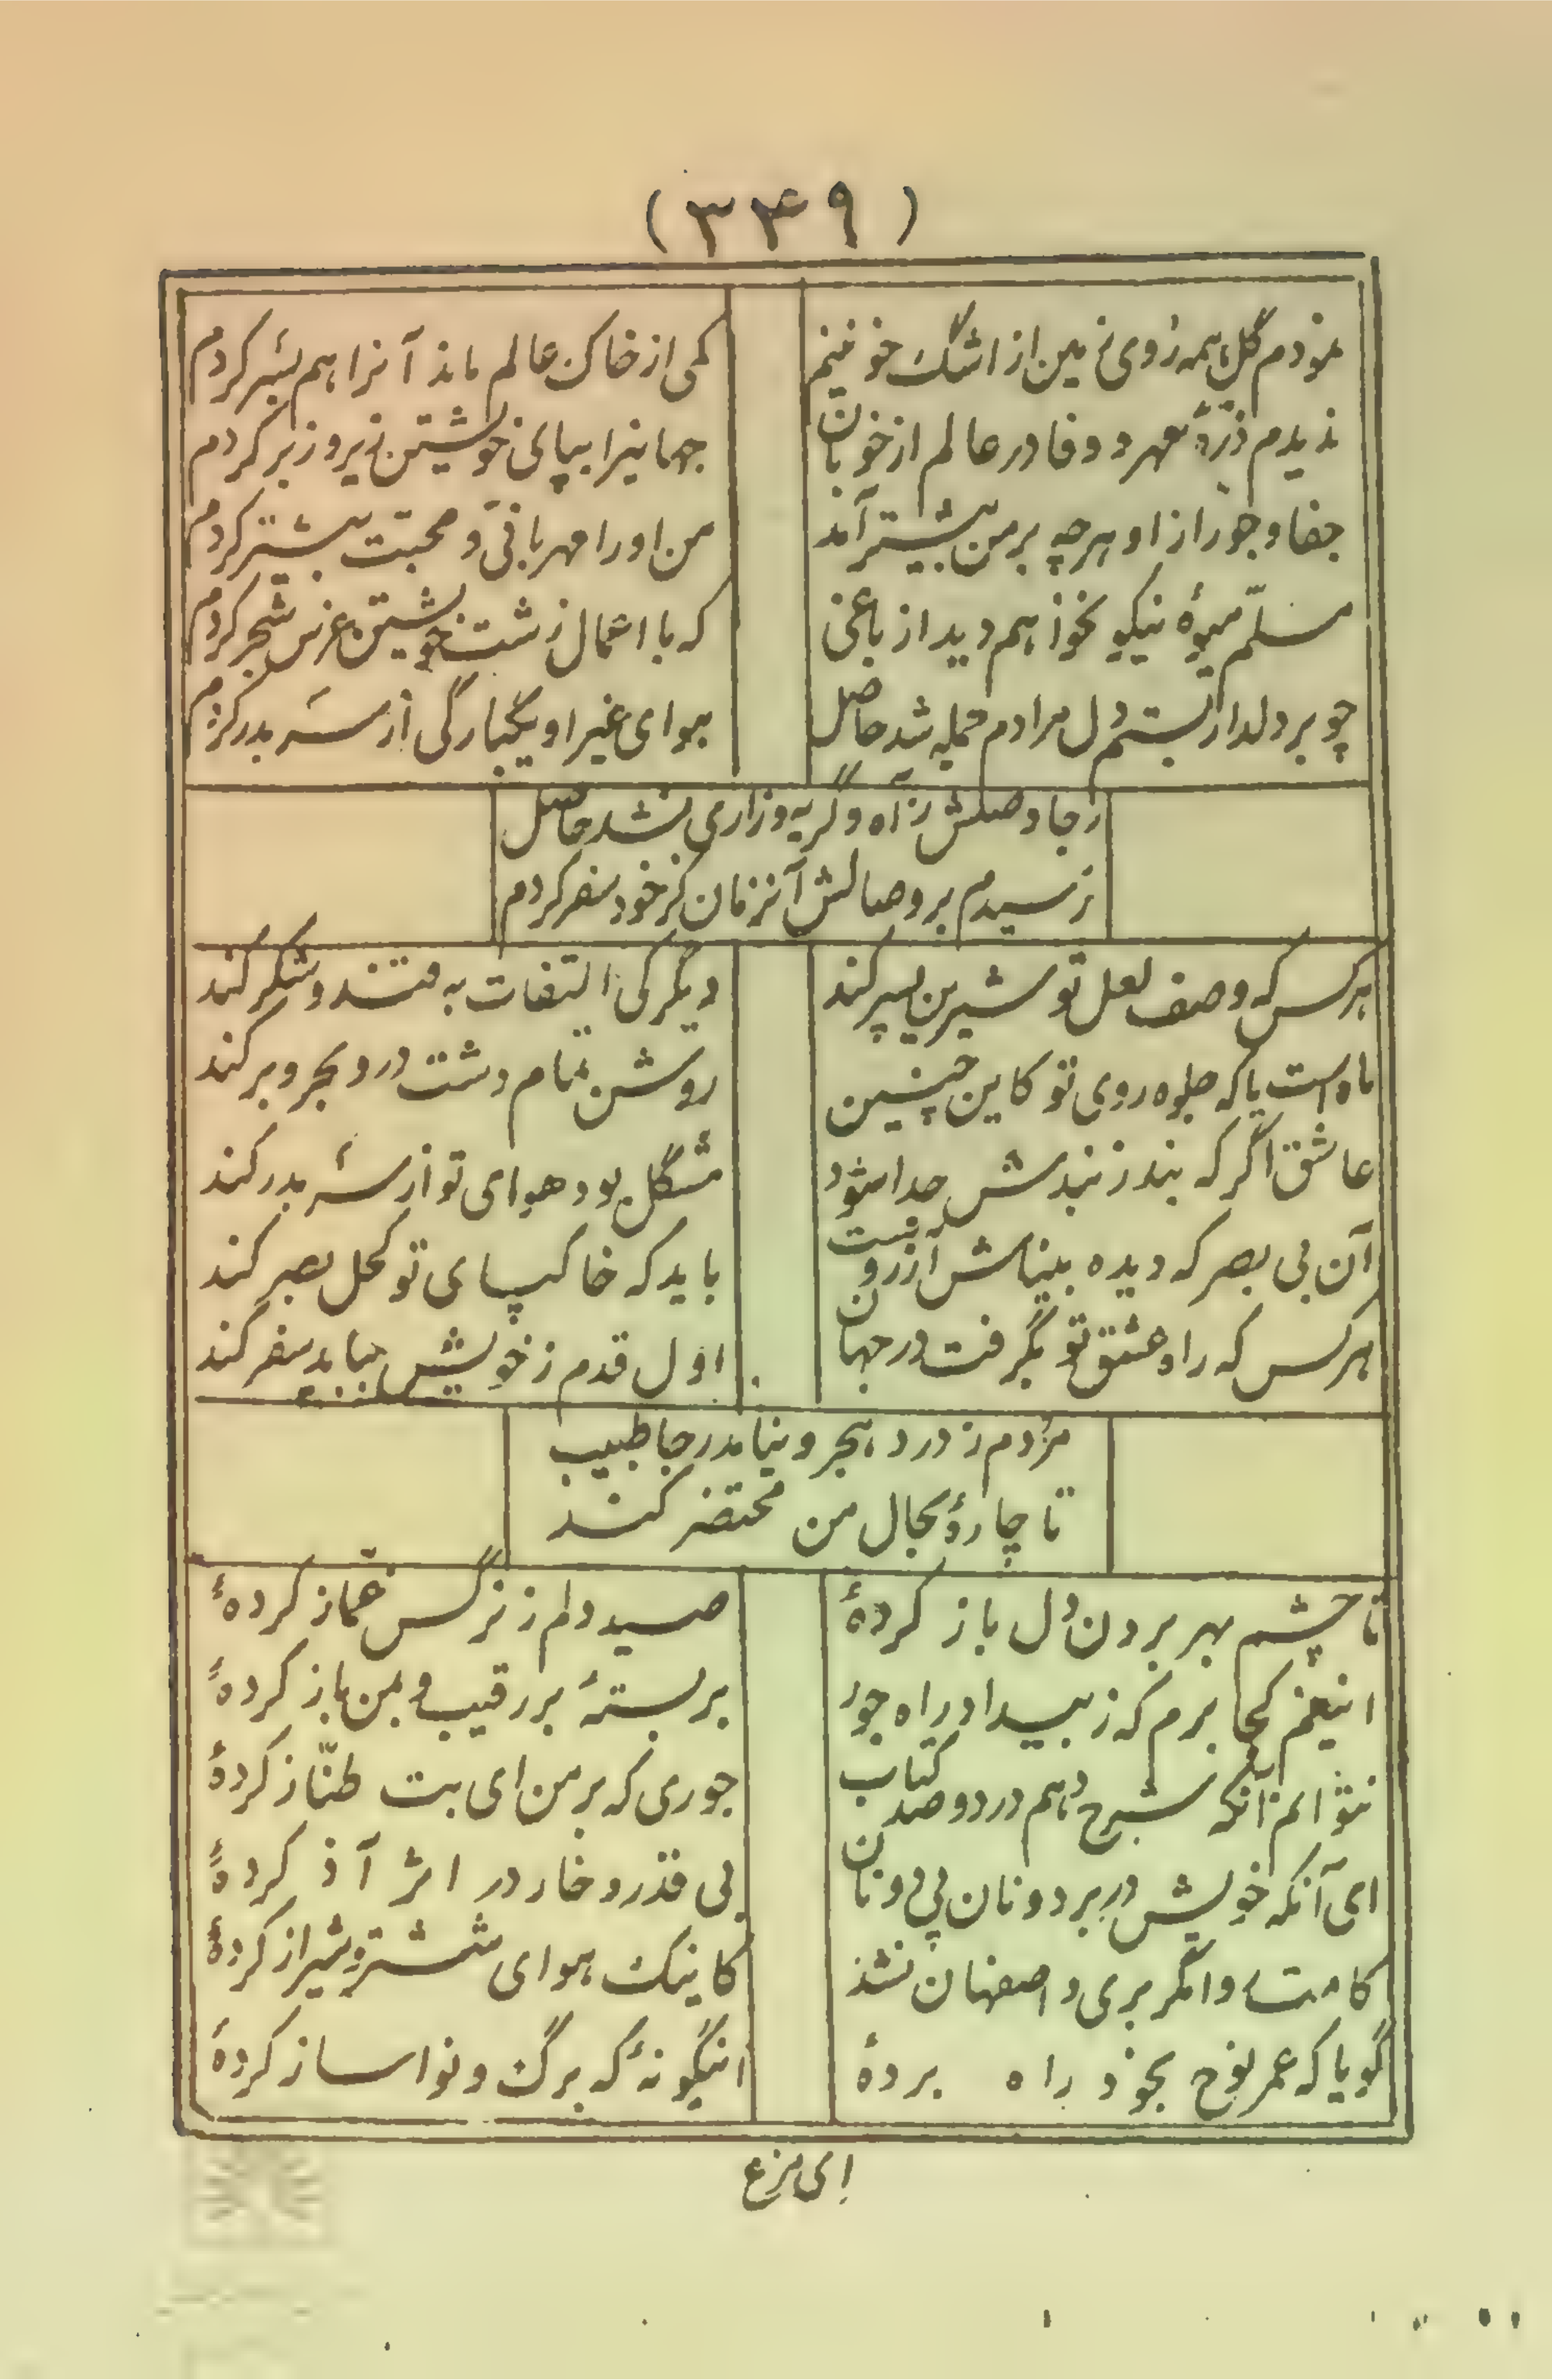 (۳۴۹)
نمودم گل همه روی زمین از اشک خونینم
کمی از خاک عالم ماند آنرا هم بسر کردم
ندیدم ذرّهٔ مهر و وفا در عالم از خوبان
جهانیرا بپای خویشتن زیر و زبر کردم
جفا و جور از او هرچه بر من بیشتر آمد
من او را مهربانی و محبت بیشتر کردم
مسلّم میوهٔ نیکو نخواهم دید از باغی
که با اعمال زشت خویشتن غرس شجر کردم
چو بر دلدار بستم دل مرادم جمله شد حاصل
هوای غیر او یکبارگی از سر بدر کردم
رجا وصلش ز آه و گریه و زاری نشد حاصل
رسیدم بر وصالش آنزمان کز خود سفر کردم
هر کس که وصف لعل تو شیرین پسر کند
دیگر کی التفات به قند و شکر کند
ماه است یا که جلوه روی تو کاین چنین
روشن تمام دشت و در و بحر و بر کند
عاشق اگر که بند ز بندش جدا شود
مشگل بود هوای تو از سر بدر کند
آن بی بصر که دیده بیناش آرزوست
باید که خاکپای تو کحل بصر کند
هر کس که راه عشق تو بگرفت در جهان
اول قدم ز خویش بباید سفر کند
مردم ز درد هجر و نیامد رجا طبیب
تا چارهٔ بحال من محتضر کند
تا چشم بهر بردن دل باز کردهٔ
صید دلم ز نرگس غمّاز کردهٔ
اینغم کجا برم که ز بیداد راه جور
بر بستهٔ بر رقیب و بمن باز کردهٔ
نتوانم آنکه شرح دهم در دو صد کتاب
جوری که بر من ای بت طنّاز کردهٔ
ای آنکه خویش در بر دونان پی دو نان
بی قدر و خار در اثر آز کردهٔ
کامت روا مگر بری و اصفهان نشد
کاینک هوای شستر و شیراز کردهٔ
گویا که عمر نوح بخود راه بردهٔ
اینگونهٔ که برگ و نوا ساز کردهٔ
ای مرغ